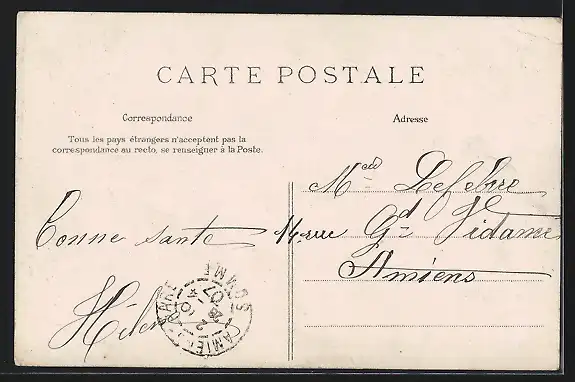 CARTE POSTALE
Correspondance
Tous les pays étrangers n'acceptent pas la
correspondance au recto, se renseigner à la Poste.
Adresse
Lefebvre
14 rue Gd Vidame
Amiens
Bonne santé
Hélène
SOMME
07